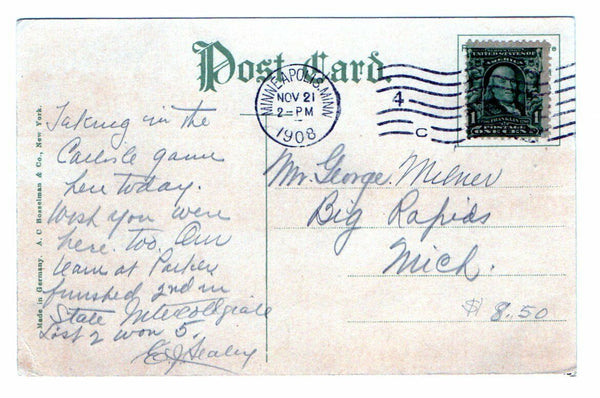 Post Card.
MINNEAPOLIS, MINN.
NOV 21
2-PM
1908
4
C
UNITED STATES OF AMERICA
1 1
FRANKLIN
POSTAGE
ONE CENT
Made in Germany. A. C. Bosselman & Co., New York.
Taking in the
Carlisle game
here today.
Wish you were
here too. Our
team at Parker
finished 2nd in
State Intercollegiate
Lost 2 won 5.
E J Sealey
Mr. George Milner
Big Rapids
Mich.
$ 8.50